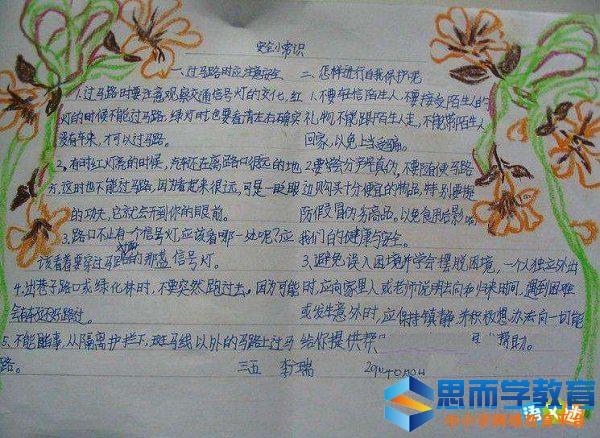 安全小常识
一、过马路时应注意安全
1.过马路时要注意观察交通信号灯的变化,红
灯的时候不能过马路,绿灯时也要看清左右确实
没有车来,才可以过马路。
2.有时红灯亮的时候,汽车还在离路口很远的地
方,这时也不能过马路,因为看起来很远,可是一眨眼
的功夫,它就会开到你的眼前。
3.路口不止有一个信号灯,应该看哪一处呢?应
该看着要穿过马路对面的那盏信号灯。
4.出巷子路口或绿化林时,不要突然跑过去。因为可能
会有
5.不能随事,从隔离护栏下,斑马线以外的马路上过马
路。
二、怎样进行自我保护呢
1.不要轻信陌生人,不要接受陌生人的
礼物,不能跟陌生人走,不能带陌生人
回家,以免上当受骗。
2.要学会分声辨真伪,不要随便马路
边购买十分便宜的物品,特别要提
防假冒伪劣商品,以免食用后影响
我们的健康与安全。
3.避免误入困境并学会摆脱困境,一个人独立外出
时,应向家里人或老师说明去向和归来时间,遇到困难
或发生意外时,应保持镇静并积极想办法向一切能
给你提供帮 帮助。
三五 李瑞
思而学教育